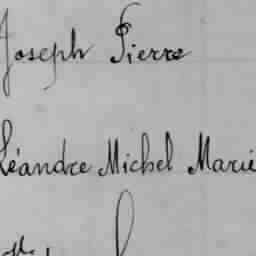 Joseph Pierre
Léandre Michel Marie